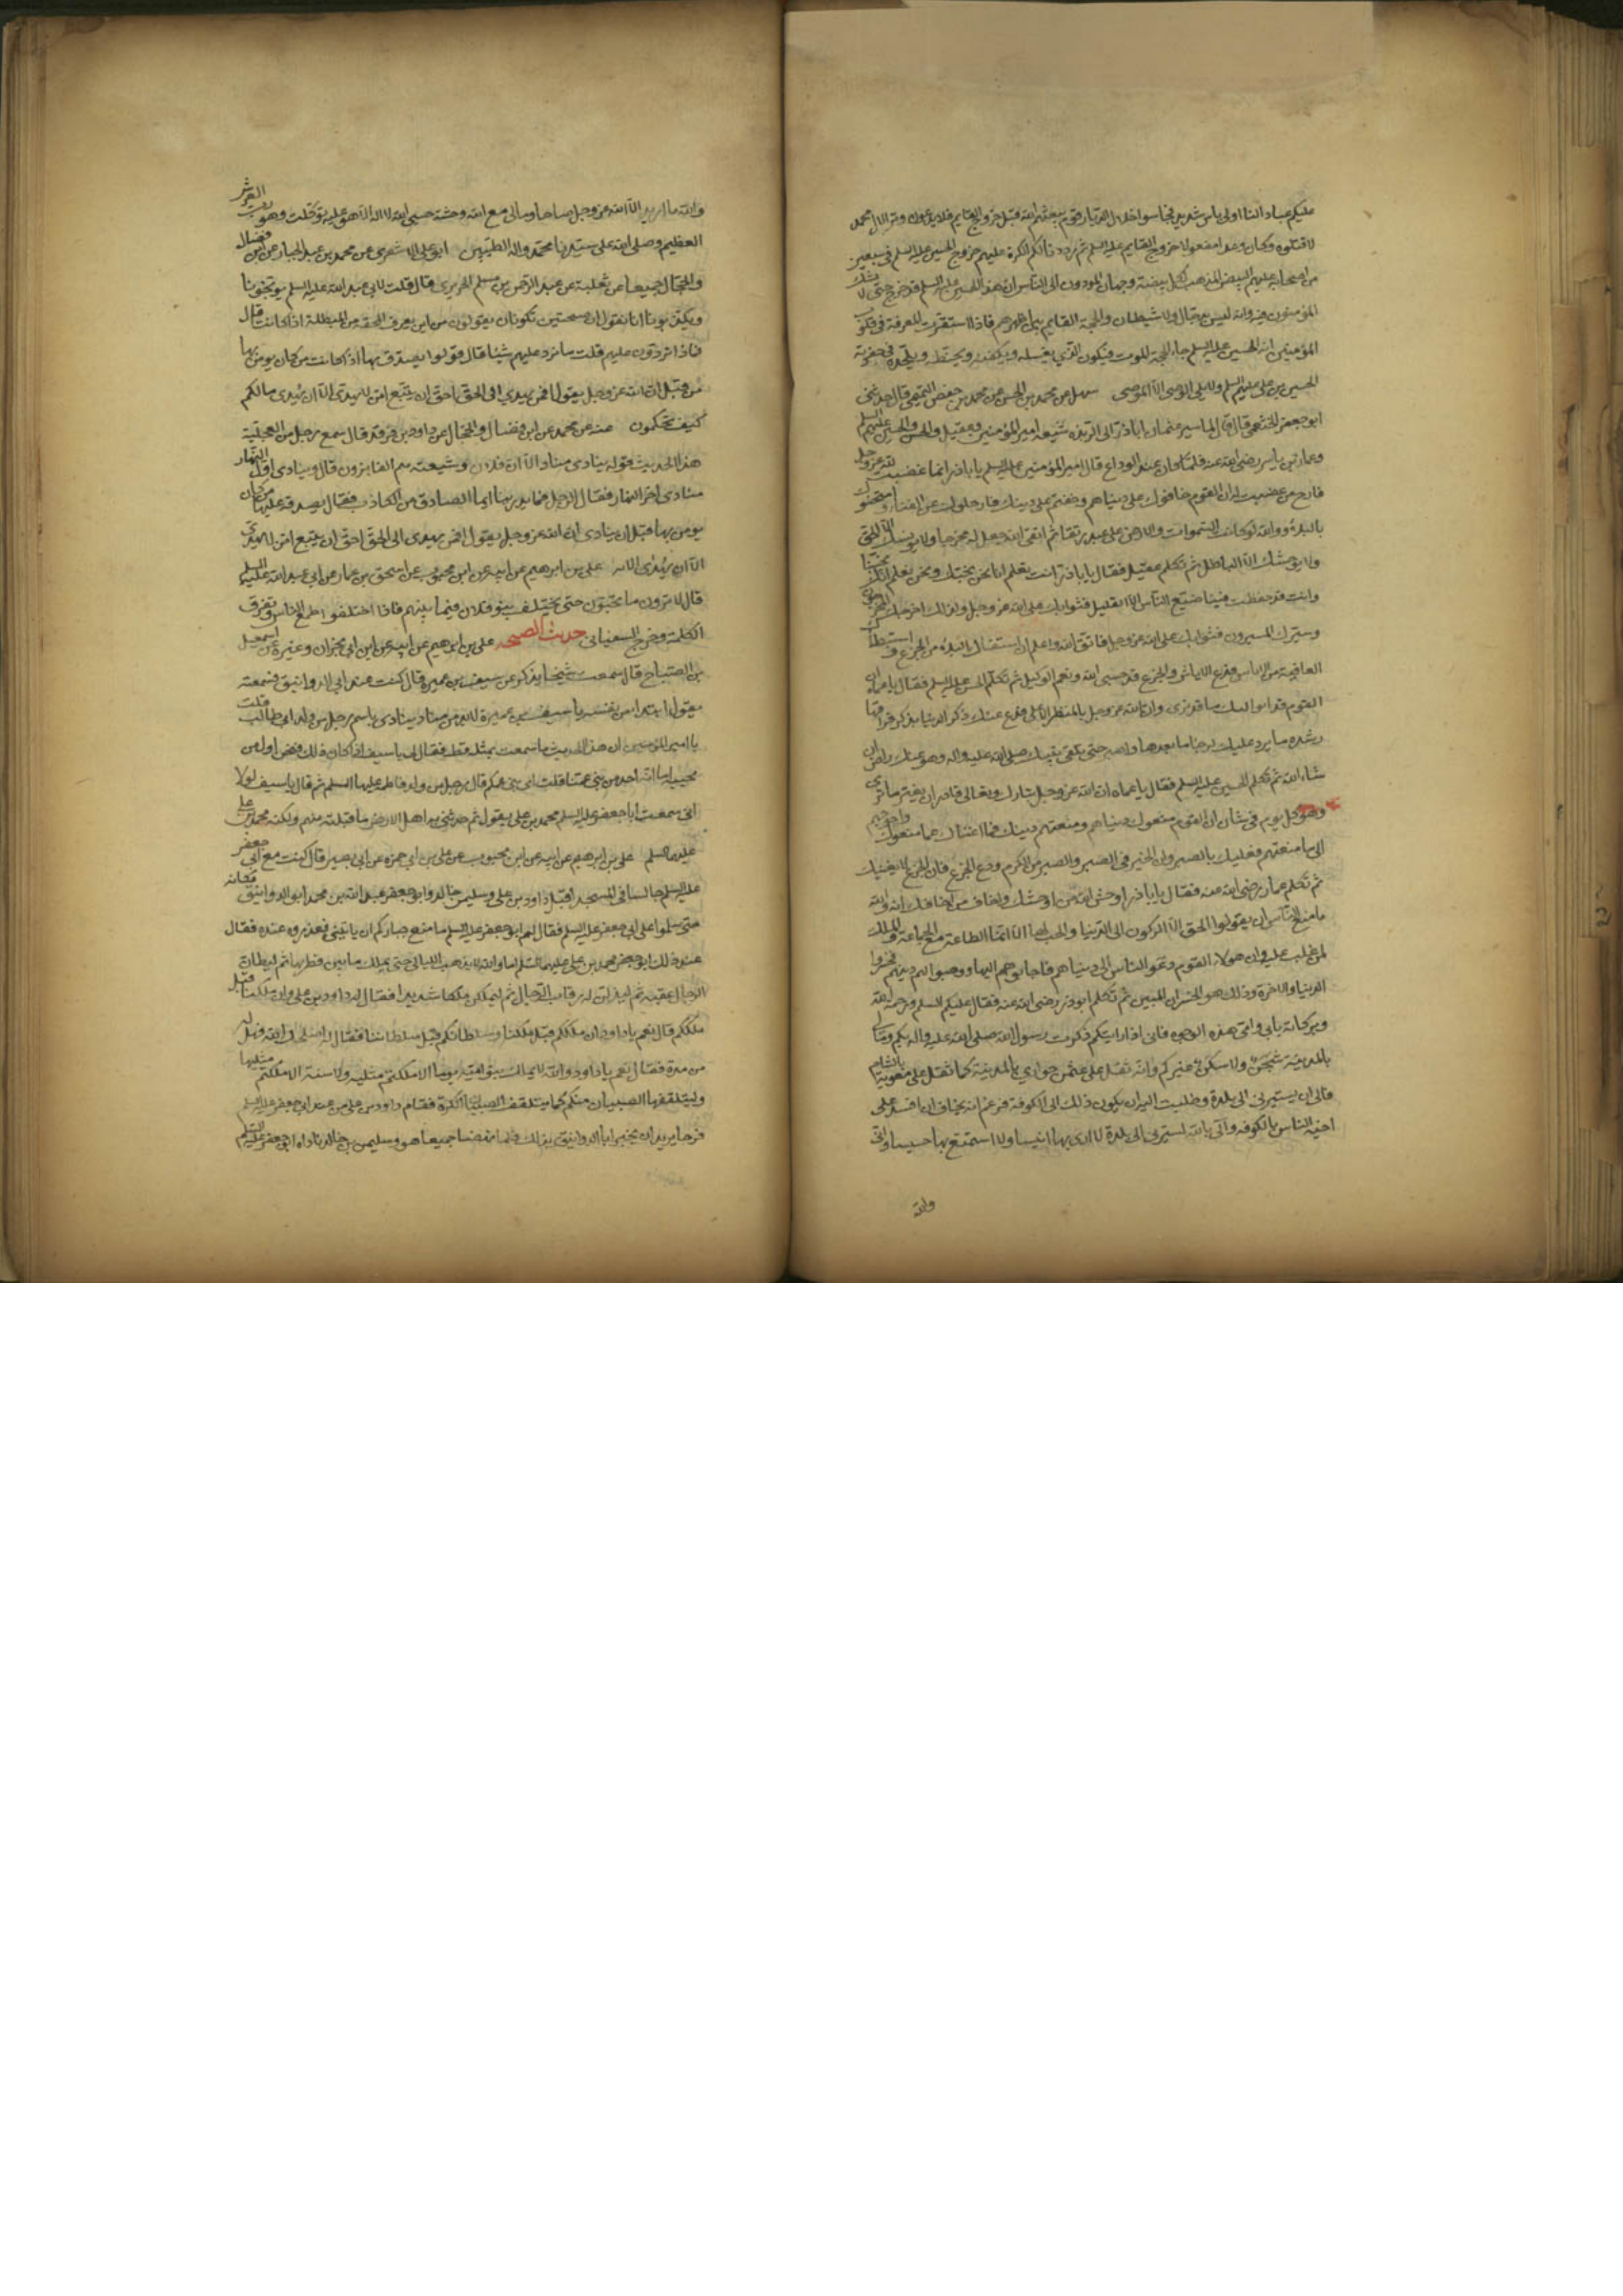 عليكم عبادا لنا اولى باس شديد فجاسوا خلال الديار قوم يبعثهم الله قبل خروج القايم فلا يدعون وترا لال محمد
الا قتلوه وكان وعدا مفعولا خروج القايم عليه السلم ثم رددنا لكم الكرة عليهم خروج الحسين عليه السلم في سبعين
من اصحابه عليهم البيض المذهب لكل بيضة وجهان المودون الى الناس ان هذا الحسين عليه السلم قد خرج حتى لا يشك
المؤمنون فيه وانه ليس بدجال ولا شيطان والحجة القايم بين اظهرهم فاذا استقرت المعرفة في قلوب
المؤمنين انه الحسين عليه السلم جاء الحجة الموت فيكون الذي يغسله ويكفنه ويحنطه ويلحده في حفرته
الحسين بن علي عليهم السلم ولا يلى الوصى الا الوصى سهل عن محمد بن الحسن عن محمد بن حفص التميمي قال حدثني
ابو جعفر الخثعمي قال قال لما سير عثمان اباذر الى الربذه شيعه امير المؤمنين وعقيل والحسن والحسين عليهم السلم
وعمار بن ياسر رضى الله عنه فلما كان عند الوداع قال امير المؤمنين عليه السلم يا اباذر انما غضبت لله عز وجل
فارج من غضبت له ان القوم خافوك على دنياهم وخفتهم على دينك فارحلوك عن الفناء وامتحنوك
بالبلاء ووالله لو كانت السموات والارض على عبد رتقا ثم اتقى الله جعل له مخرجا ولا يونسك الا الحق
ولا يوحشك الا الباطل ثم تكلم عقيل فقال يا اباذر انت تعلم انا نحن نحبك ونحن نعلم انك تحبنا
وانت قد حفظت فينا ما ضيع الناس الا القليل فثوابك على الله عز وجل ولذلك اخرجك المخرجون
وسيرك المسيرون فثوابك على الله عز وجل فاتق الله واعلم ان استعفاك البلاء من الجزع واستبطاك
العافية من الاياس فدع الاياس والجزع وقل حسبى الله ونعم الوكيل ثم تكلم الحسن عليه السلم فقال يا عماه ان
القوم قد اتوا اليك ما قد ترى وان الله عز وجل بالمنظر الاعلى فدع عنك ذكر الدنيا بذكر فراقها
وشدة ما يرد عليك لرجا ما بعدها واصبر حتى تلقى نبيك صلى الله عليه واله وهو عنك راض ان
شاء الله ثم تكلم الحسين عليه السلم فقال يا عماه ان الله عز وجل تبارك وتعالى قادر ان يغير ما ترى
وهو كل يوم في شان ان القوم منعوك دنياهم ومنعتهم دينك فما اغناك عما منعوك واحوجهم
الى ما منعتهم فعليك بالصبر وان الخير في الصبر والصبر من الكرم ودع الجزع فان الجزع لا يغنيك
ثم تكلم عمار رضى الله عنه فقال يا اباذر اوحش الله من اوحشك واخاف من اخافك انه والله
ما منع الناس ان يقولوا الحق الا الركون الى الدنيا والحب لها الا انما الطاعة مع الجماعة والملك
لمن غلب عليه وان هولاء القوم دعوا الناس الى دنياهم فاجابوهم اليها ووهبوا لهم دينهم فخسروا
الدنيا والاخرة وذلك هو الخسران المبين ثم تكلم ابوذر رضى الله عنه فقال عليكم السلم ورحمة الله
وبركاته بابي وامى هذه الوجوه فانى اذا رايتكم ذكرت رسول الله صلى الله عليه واله بكم ومالى
بالمدينة شجن ولا سكن غيركم وانه ثقل على عثمن جوارى بالمدينة كما ثقل على معوية بالشام
فالى ان يسيرنى الى بلدة فطلبت اليه ان يكون ذلك الى الكوفة فزعم انه يخاف ان افسد على
اخيه الناس بالكوفه والى بالله ليسيرنى الى بلدة لا ارى بها انيسا ولا استمتع بها حسيسا وانى
والله
والله ما اريد الا الله عز وجل صاحبا ومالى مع الله وحشة حسبى الله لا اله الا هو عليه توكلت وهو رب العرش
العظيم وصلى الله على سيدنا محمد واله الطيبين ابو على الاشعرى عن محمد بن عبد الجبار عن ابن فضال
والحجال جميعا عن ثعلبة عن عبد الرحمن بن مسلم الجريرى قال قلت لابى عبد الله عليه السلم يوبخونا
ويكذبونا انا نقول ان صيحتين تكونان يقولون من اين يعرف المحقه من المبطلة اذا كانتا قال
فماذا تردون عليهم قلت ما نرد عليهم شيئا قال قولوا يصدق بها اذا كانت من كان يومن بها
من قبل ان الله عز وجل يقول افمن يهدي الى الحق احق ان يتبع امن لا يهدى الا ان يهدى مالكم
كيف تحكمون عنه عن محمد عن ابن فضال والحجال عن داود بن فرقد قال سمع رجل من العجلية
هذا الحديث قوله ينادى مناد الا ان فلان وشيعته هم الفايزون قال وينادى اول النهار
منادى اخر النهار فقال الرجل فما يدرينا ايما الصادق من الكاذب فقال يصدقه عليها من كان
يومن بها قبل ان ينادى ان الله عز وجل يقول افمن يهدى الى الحق احق ان يتبع امن لا يهدى
الا ان يهدى الاية على بن ابرهيم عن ابيه عن ابن محبوب عن اسحق بن عمار عن ابى عبد الله عليه السلم
قال لا ترون ما تحبون حتى يختلف بنو فلان فيما بينهم فاذا اختلفوا طمع الناس وتفرقت
الكلمة وخرج السفيانى حديث الصيحه على بن ابرهيم عن ابيه عن ابن ابى نجران وغيره عن اسمعيل
بن الصباح قال سمعت شيخا يذكر عن سيف بن عميرة قال كنت عند ابى الدوانيق فسمعته
يقول ابتداء من نفسه يا سيف بن عميرة لا بد من مناد ينادى باسم رجل من ولد ابى طالب قلت
يا امير المؤمنين ان هذا الحديث ما سمعت بمثله قط فقال لى يا سيف اذا كان ذلك فنحن اول من
يجيبه اما انه احد من بنى عمنا قلت اى بنى عمكم قال رجل من ولد فاطمه عليها السلم ثم قال يا سيف لولا
انى سمعت ابا جعفر عليه السلم محمد بن على يقول ثم حدثنى به اهل الارض ما قبلته منهم ولكنه محمد بن على
عليهما السلم على بن ابرهيم عن ابيه عن ابن محبوب عن على بن ابى حمزه عن ابى بصير قال كنت مع ابى جعفر
عليه السلم جالسا في المسجد اقبل داود بن على وسليمن بن خالد وابو جعفر عبد الله بن محمد ابو الدوانيق
حتى سلموا على ابى جعفر عليه السلم فقال لهم ابو جعفر عليه السلم ما منع جباركم ان ياتينى فعذروه عنده فقال
عند ذلك ابو جعفر محمد بن على عليهما السلم اما والله لا يذهب الليالى حتى يملك ما بين قطريها ثم ليطان
الرجال عقبه ثم ليذلن له رقاب الرجال ثم ليملكن ملكا شديدا فقال له داود بن على وان ملكنا قبل
ملككم قال نعم يا داود ان ملككم قبل ملكنا وسلطانكم قبل سلطاننا فقال له اصلحك الله فهل له
من مدة فقال نعم يا داود والله لا يملك بنو امية يوما الا ملكتم مثليه ولا سنة الا ملكتم مثليها
وليتلقفها الصبيان منكم كما يتلقف الصبيان الكرة فقام داود بن على من عند ابى جعفر عليه السلم
فرحا يريد ان يخبر ابا الدوانيق بذلك فلما نهضا جميعا هو وسليمن بن خالد ناداه ابو جعفر عليه السلم